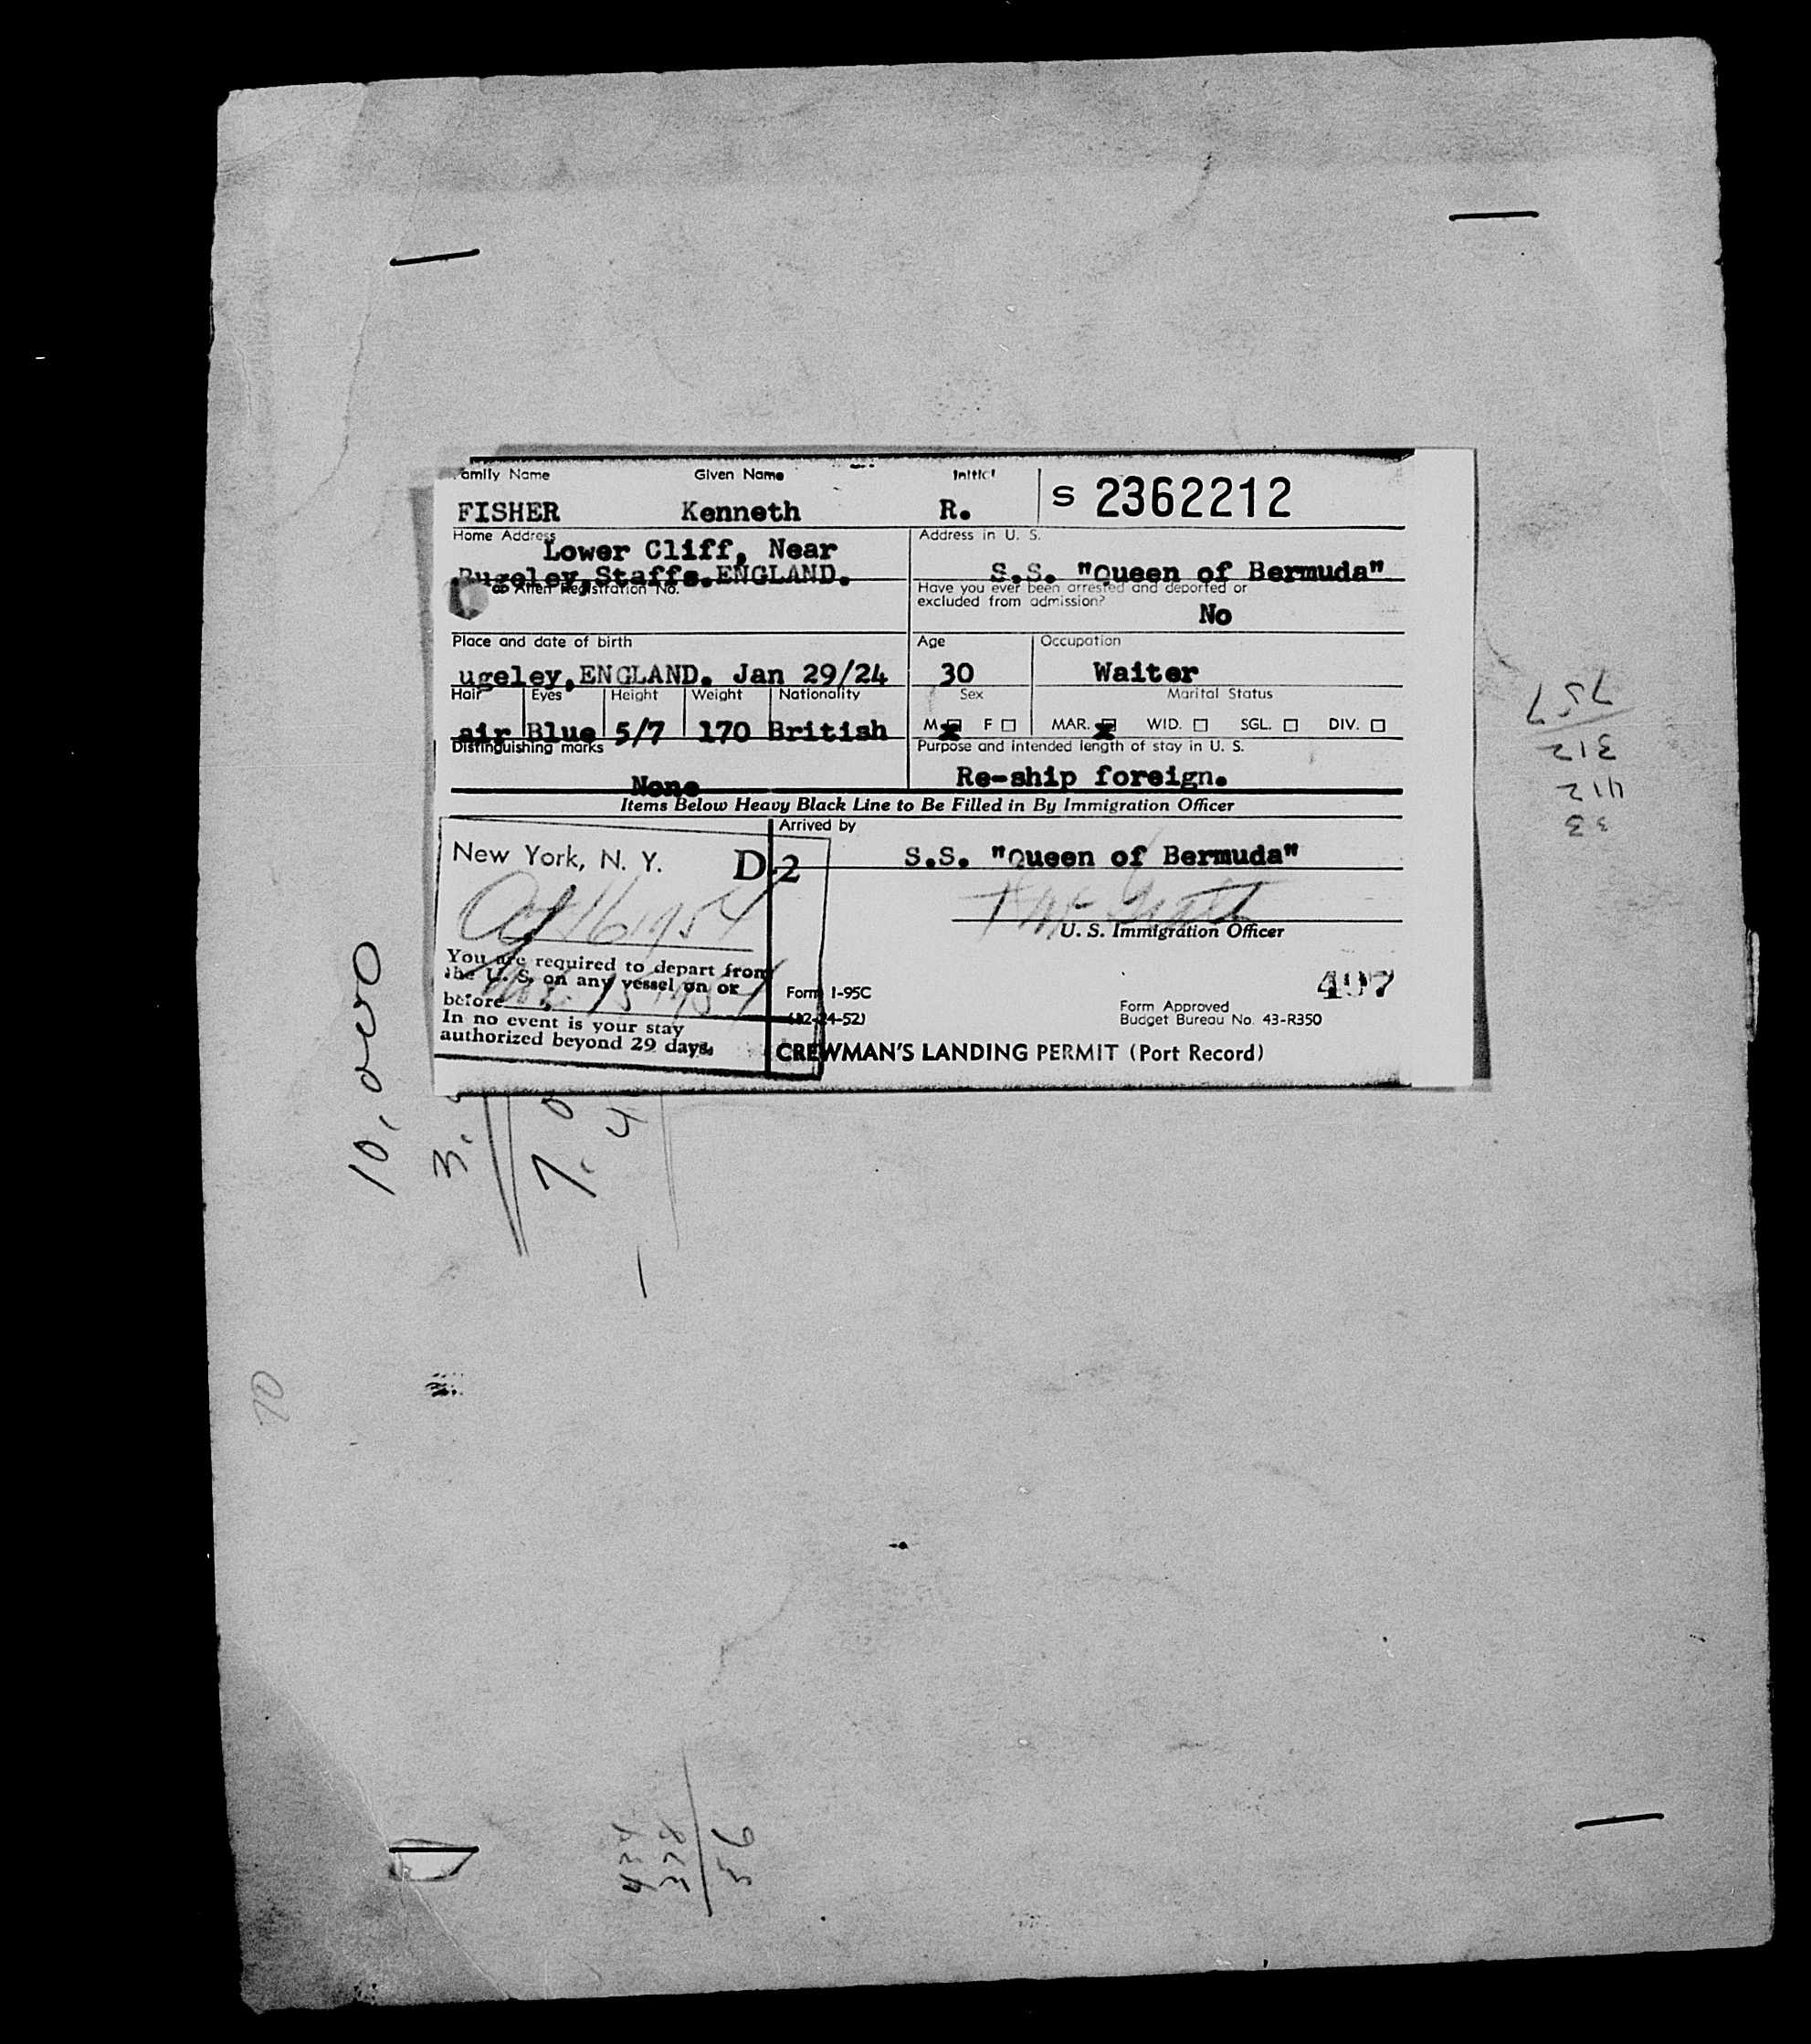 amily Name Given Name Initial
S 2362212
FISHER Kenneth R.
Home Address
Lower Cliff, Near
Rugeley, Staffs. ENGLAND.
Address in U. S.
S.S. "Queen of Bermuda"
Alien Registration No.
Have you ever been arrested and deported or
excluded from admission?
No
Place and date of birth
ugeley, ENGLAND. Jan 29/24
Age
30
Occupation
Waiter
Hair Eyes Height Weight Nationality
air Blue 5/7 170 British
Sex
M X F
Marital Status
MAR. X WID. SGL. DIV.
Distinguishing marks
None
Purpose and intended length of stay in U. S.
Re-ship foreign.
Items Below Heavy Black Line to Be Filled in By Immigration Officer
Arrived by
S.S. "Queen of Bermuda"
New York, N. Y. D-2
16 1954
You are required to depart from
the U. S. on any vessel on or
before 15 1954
In no event is your stay
authorized beyond 29 days.
U. S. Immigration Officer
497
Form I-95C
(12-24-52)
Form Approved
Budget Bureau No. 43-R350
CREWMAN'S LANDING PERMIT (Port Record)
10,000
3,
7,
4
70
33
412
312
757
434
378
56